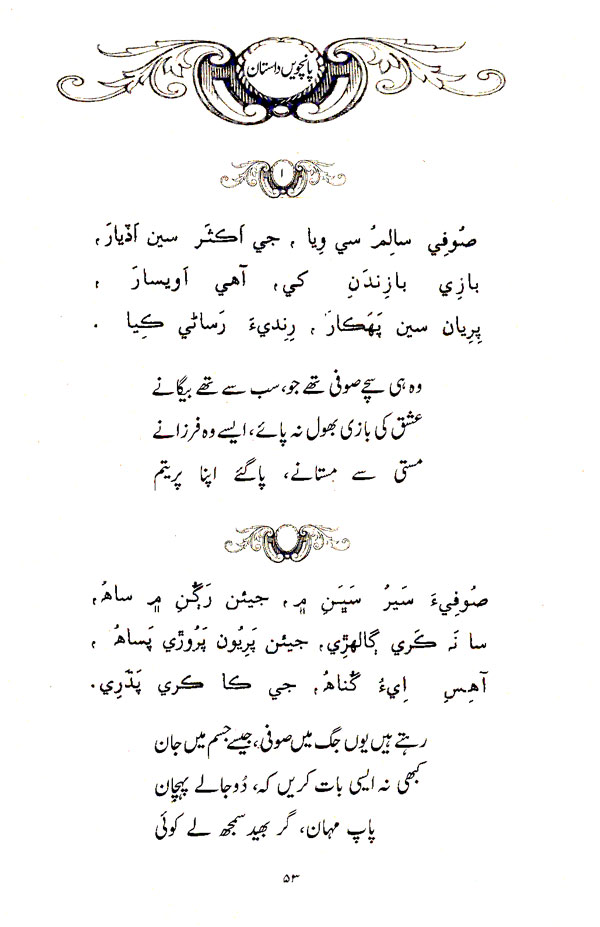 پانچویں داستان
۱
صُوفِي سالِمُ سي وِيا ، جي اَڪثَر سين اَڏيارَ،
بازِي بازِندَنِ کي، آهي اَويسارَ ،
پِرِيان سين پَھَڪارَ ، رِندِيءَ رَسائي ڪِيا .
وہ ہی سچے صوفی تھے جو، سب سے تھے بیگانے
عشق کی بازی بھول نہ پائے، ایسے وہ فرزانے
مستی سے مستانے، پا گئے اپنا پریتم
صُوفِيءَ سَيرُ سَڀَنِ ۾، جيئن رَڳُنِ ۾ ساھُ،
سا نَہ ڪَري ڳالهڙِي، جيئن پَرِيُون پَرُوڙي پَساھُ ،
آهِسِ اِيءُ گُناھُ، جي ڪا ڪري پَڌَرِي.
رہتے ہیں یوں جگ میں صوفی، جیسے جسم میں جان
کبھی نہ ایسی بات کریں کہ، دُوجا لے پہچان
پاپ مہان، گر بھید سمجھ لے کوئی
۵۳